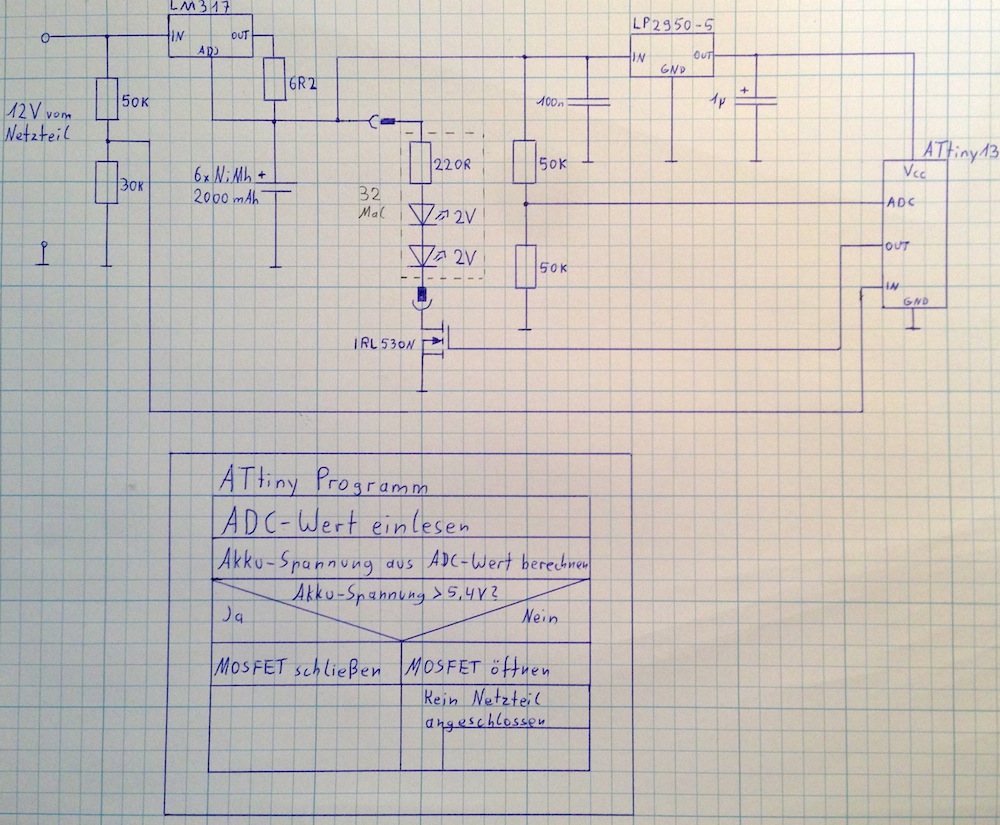 LM317
IN
OUT
ADJ
6R2
50K
12V vom
Netzteil
30K
6x NiMh +
2000 mAh
32
Mal
220R
2V
2V
IRL530N
LP2950-5
IN
OUT
GND
100n
1µ
+
50K
50K
ATtiny13
Vcc
ADC
OUT
IN
GND
ATtiny Programm
ADC-Wert einlesen
Akku-Spannung aus ADC-Wert berechnen
Akku-Spannung > 5,4V?
Ja
Nein
MOSFET schließen
MOSFET öffnen
Kein Netzteil
angeschlossen